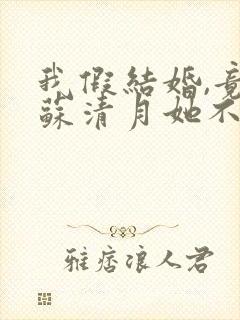 我假結婚,竟
蘇清月她不
雅痞浪人君